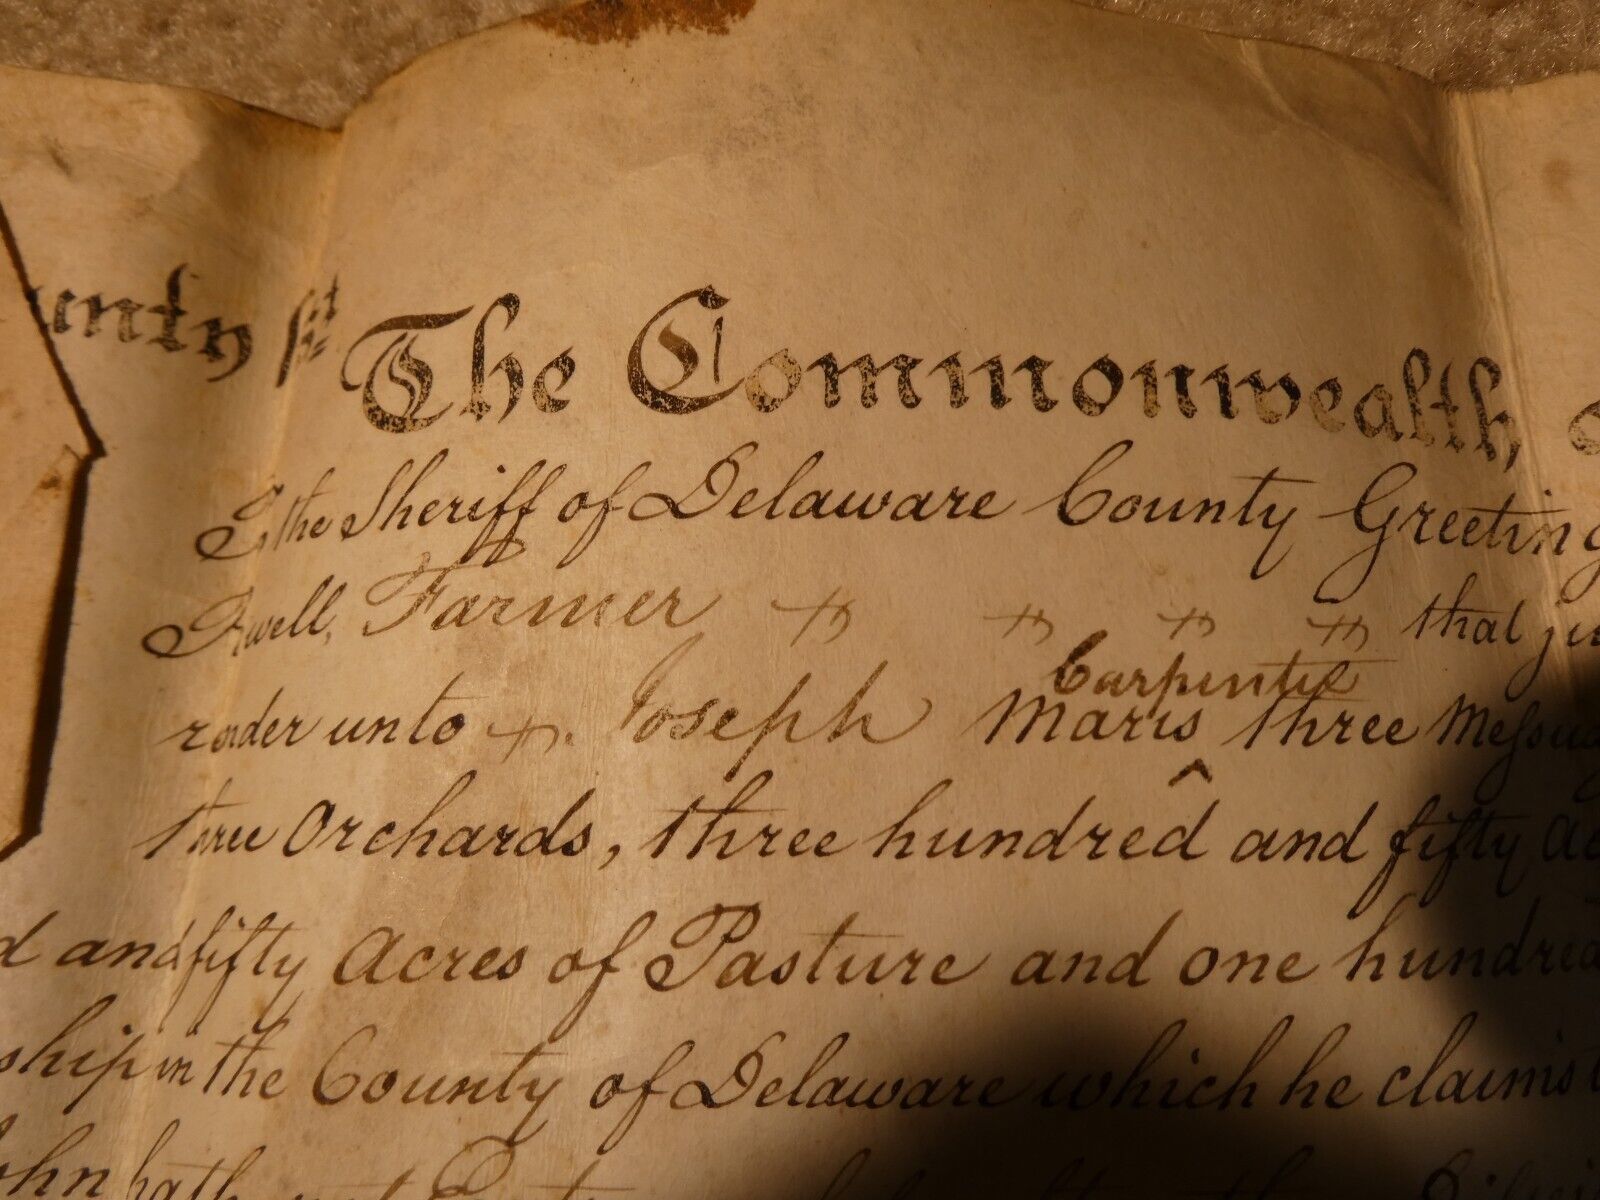 unty ss The Commonwealth
To the Sheriff of Delaware County Greeting
Atwell, Farmer that
render unto Joseph Maris ^ Carpenter three Messuag
three Orchards, three hundred and fifty Ac
d and fifty Acres of Pasture and one hundred
ship in the County of Delaware which he claims
John hath not